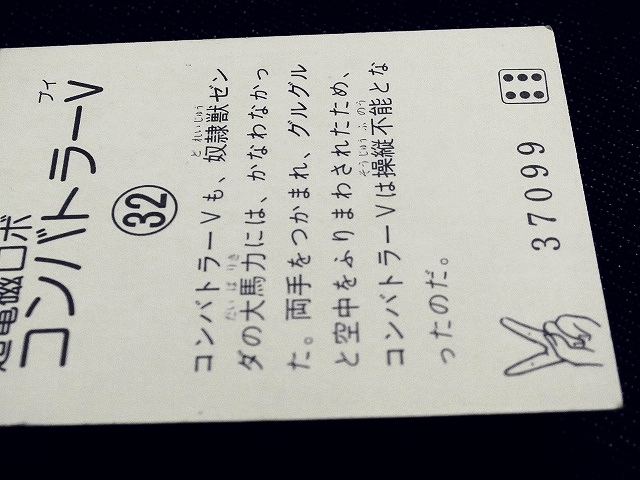 超電磁ロボ
コンバトラーV
ブイ
32
コンバトラーVも、奴隷獣ゼン
どれいじゅう
ダの大馬力には、かなわなかっ
だいばりき
た。両手をつかまれ、グルグル
と空中をふりまわされたため、
コンバトラーVは操縦不能とな
そうじゅうふのう
ったのだ。
37099